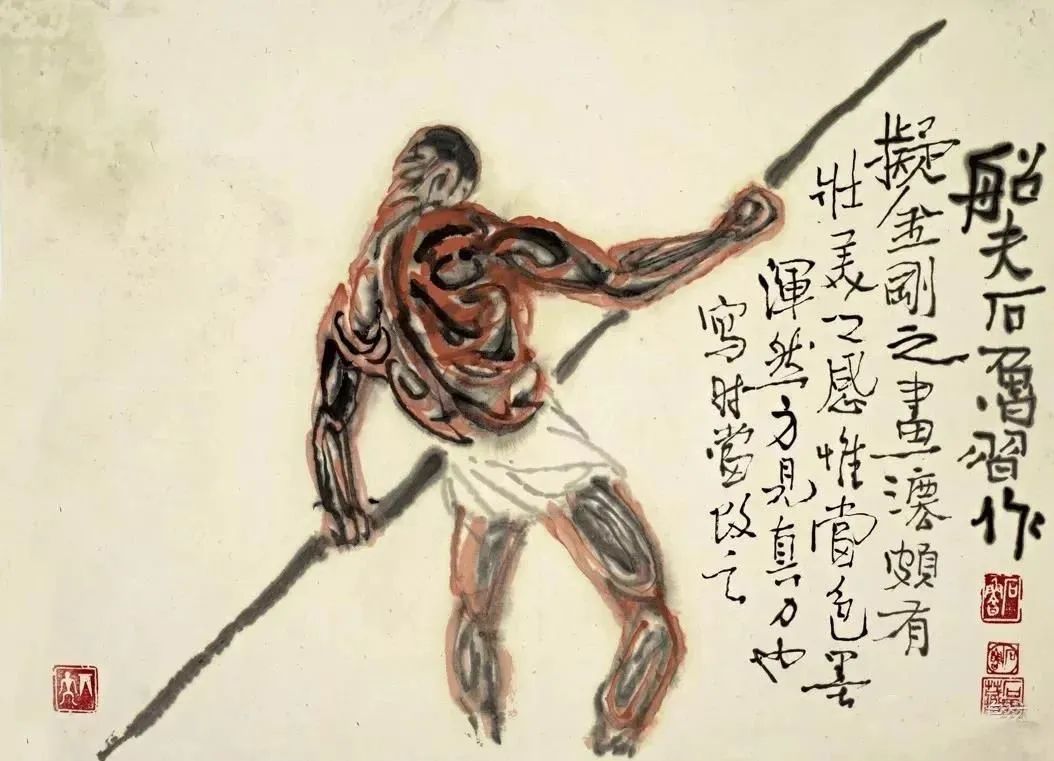 船夫石魯習作
擬金剛之畫灋頗有
壯美之感惟當色墨
渾然方見真力也
寫时當改之
石魯